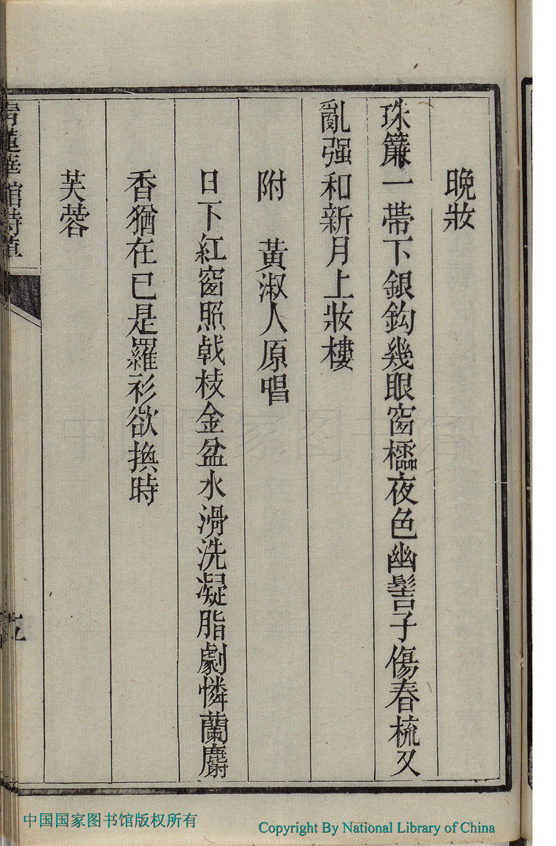 晚妝
珠簾一帶下銀鈎幾眼窗櫺夜色幽髻子傷春梳又
亂强和新月上妝樓
附 黃淑人原唱
日下紅窗照戟枝金盆水滑洗凝脂劇憐蘭麝
香猶在已是羅衫欲換時
芙蓉
青蓮華館詩草
中国国家图书馆
中国国家图书馆版权所有
Copyright By National Library of China